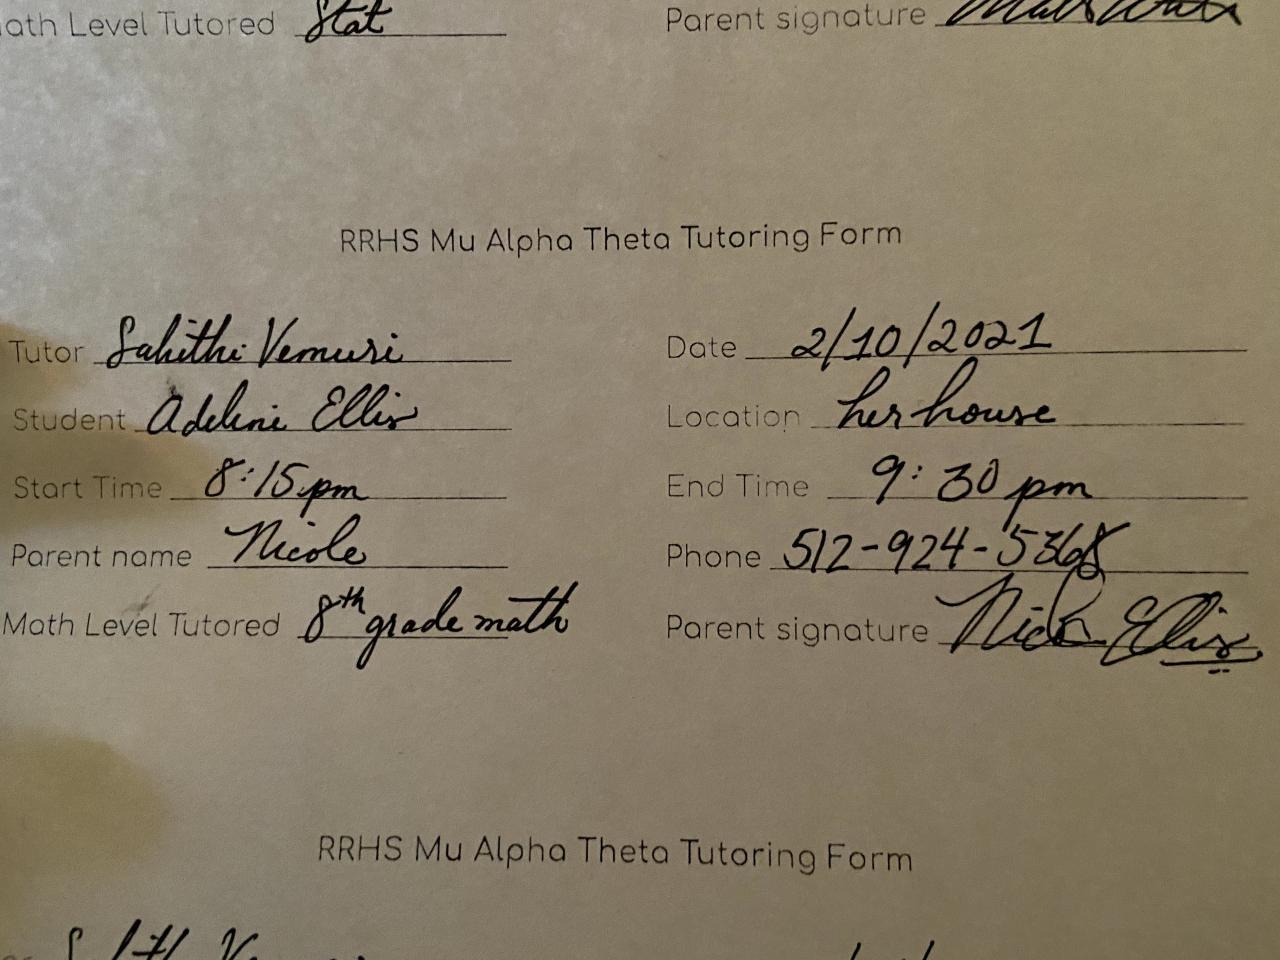 ath Level Tutored Stat Parent signature
RRHS Mu Alpha Theta Tutoring Form
Tutor Sahithi Vemuri Date 2/10/2021
Student Adeline Ellis Location her house
Start Time 8:15 pm End Time 9:30 pm
Parent name Nicole Phone 512-924-5368
Math Level Tutored 8th grade math Parent signature Nicole Ellis
RRHS Mu Alpha Theta Tutoring Form